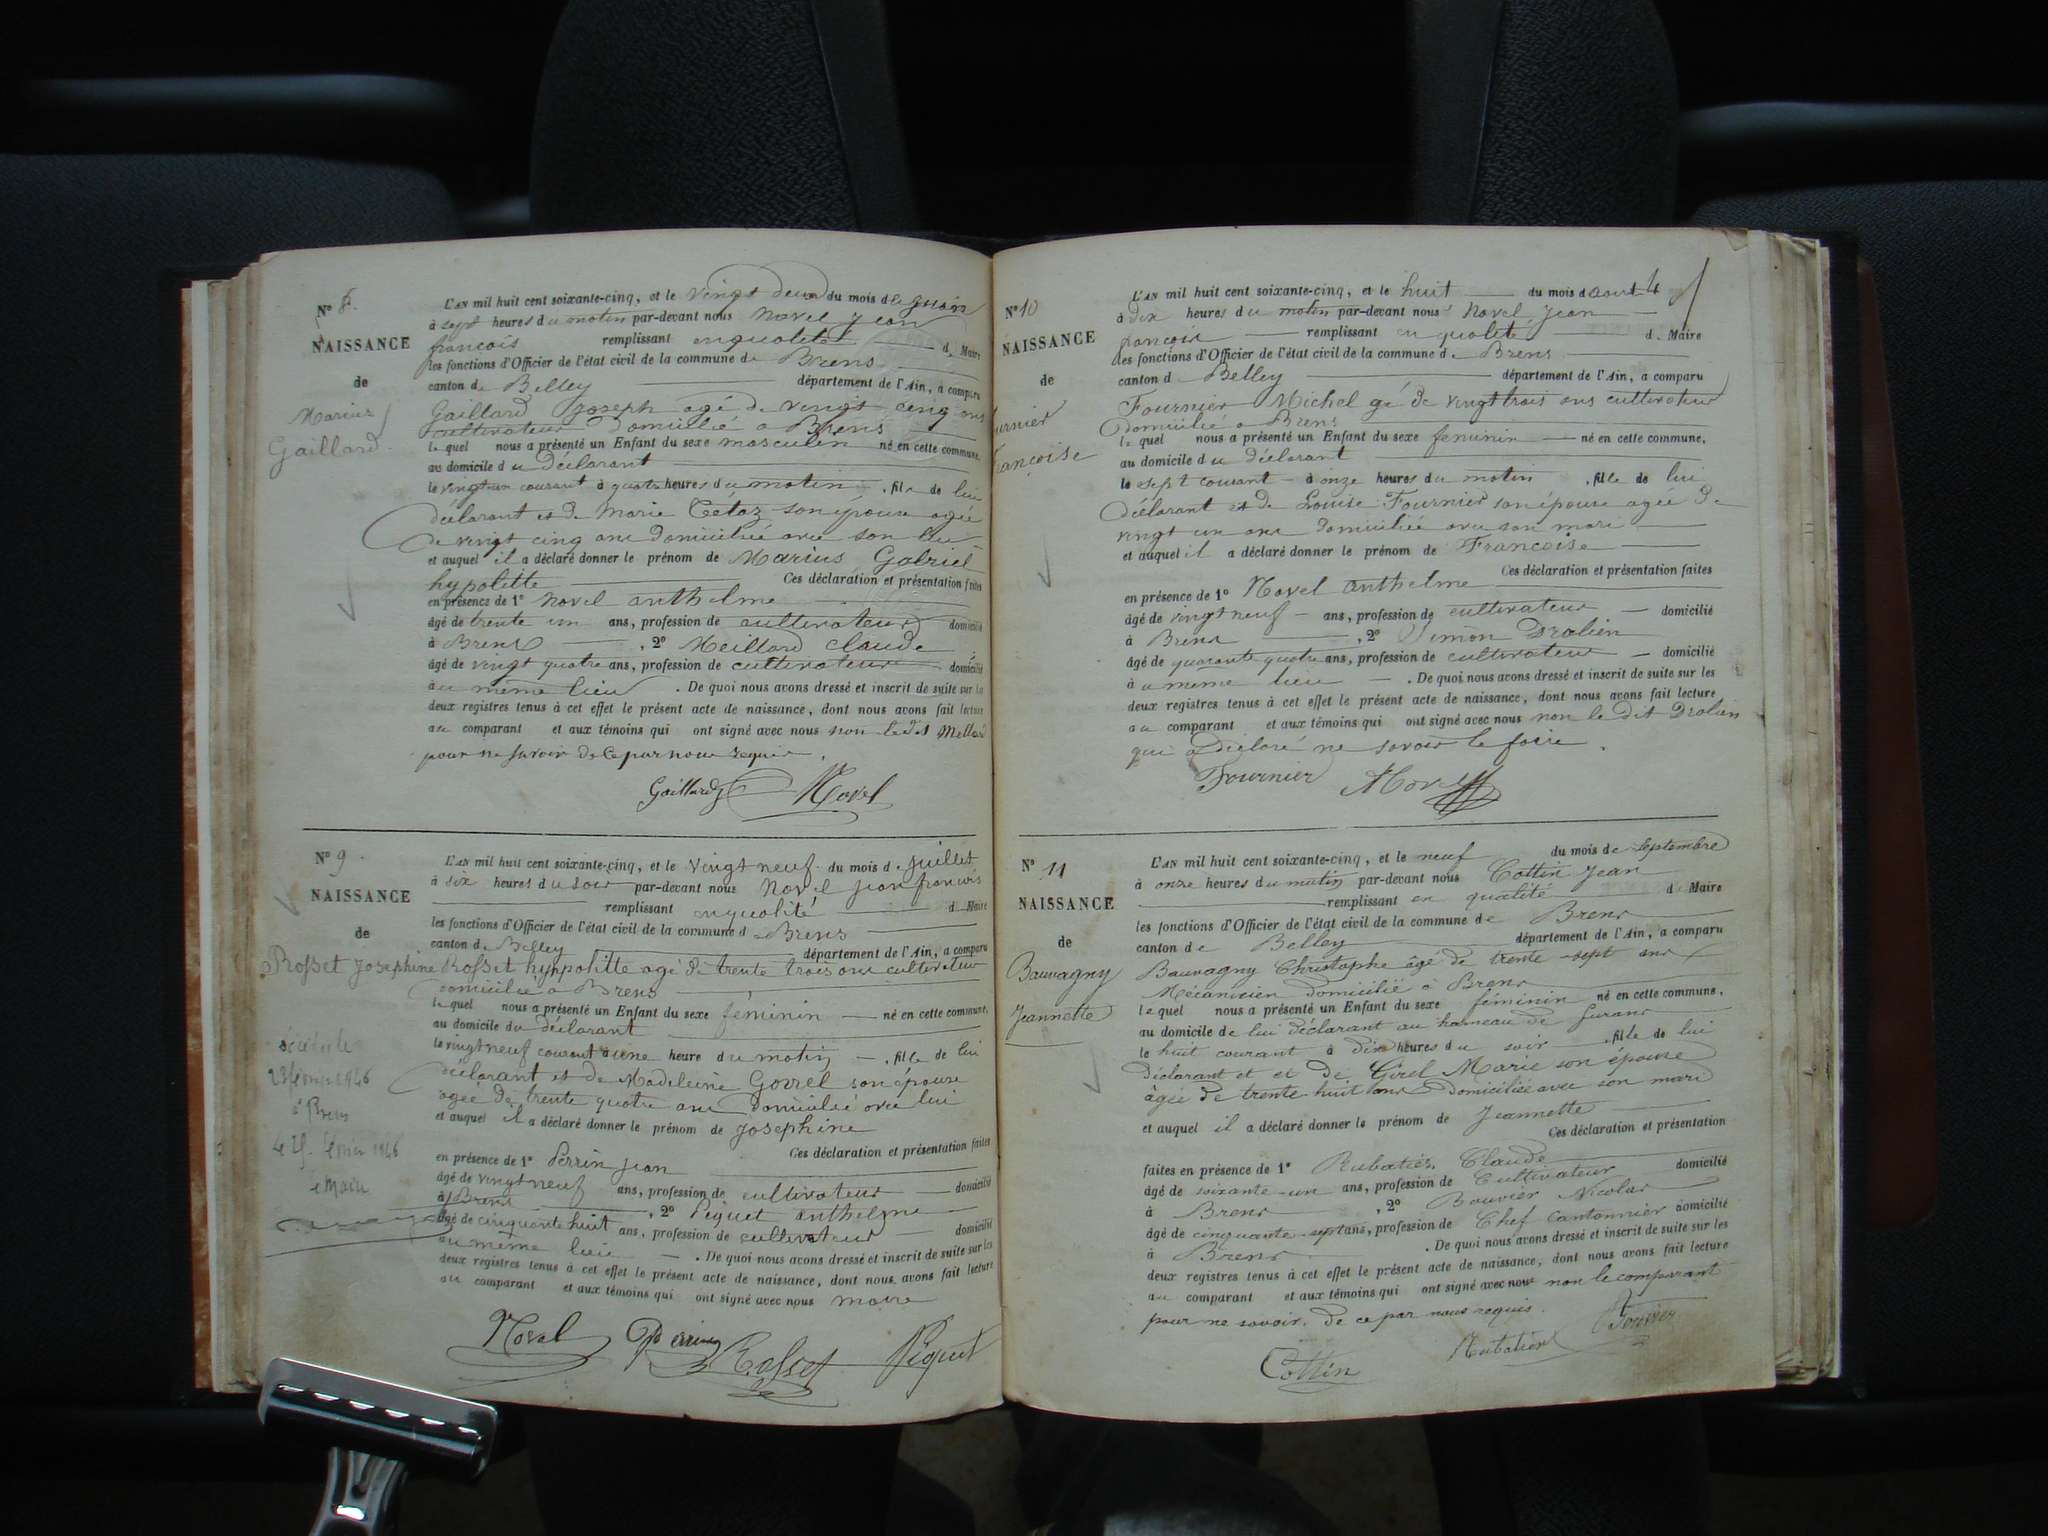 N° 8.
NAISSANCE
de
Marius
Gaillard
L'AN mil huit cent soixante-cinq, et le vingt deux du mois de juin
à sept heures du matin par-devant nous Novel Jean
françois remplissant en qualité de Maire
les fonctions d'Officier de l'état civil de la commune de Brens
canton de Belley département de l'Ain, a comparu
Gaillard Joseph agé de vingt cinq ans
cultivateur domicilié a Brens
le quel nous a présenté un Enfant du sexe masculin né en cette commune,
au domicile du déclarant
le vingt un courant à quatre heures du matin , fils de lui
déclarant et de Marie Tétaz son épouse agée
de vingt cinq ans domiciliée avec son
et auquel il a déclaré donner le prénom de Marius Gabriel
hypolitte Ces déclaration et présentation faites
en présence de 1° Novel anthelme
âgé de trente un ans, profession de cultivateur domicilié
à Brens , 2° Meillard claude
âgé de vingt quatre ans, profession de cultivateur domicilié
au même lieu . De quoi nous avons dressé et inscrit de suite sur les
deux registres tenus à cet effet le présent acte de naissance, dont nous avons fait lecture
au comparant et aux témoins qui ont signé avec nous non le dit Mellard
pour ne savoir de ce par nous requis.
Gaillard Novel
N° 9
NAISSANCE
de
Rosset Josephine
L'AN mil huit cent soixante-cinq, et le vingt neuf du mois de juillet
à six heures du soir par-devant nous Novel jean francois
remplissant en qualité de Maire
les fonctions d'Officier de l'état civil de la commune d Brens
canton de Belley département de l'Ain, a comparu
Rosset hyppolitte agé de trente trois ans cultivateur
domicilié a Brens
le quel nous a présenté un Enfant du sexe féminin né en cette commune,
au domicile du déclarant
le vingt neuf courant à une heure du matin , fille de lui
déclarant et de Madeleine Gorrel son épouse
agée de trente quatre ans domiciliée avec lui
et auquel il a déclaré donner le prénom de Josephine
Ces déclaration et présentation faites
en présence de 1° Perrin jean
âgé de vingt neuf ans, profession de cultivateur domicilié
à Brens , 2° Piquet anthelme
âgé de cinquante huit ans, profession de cultivateur domicilié
au même lieu . De quoi nous avons dressé et inscrit de suite sur les
deux registres tenus à cet effet le présent acte de naissance, dont nous avons fait lecture
au comparant et aux témoins qui ont signé avec nous maire
Novel Perrin Rosset Piquet
décédée le
23 1946
à Brens
le 25 février 1946
le Maire
N° 10
NAISSANCE
de
urnier
ançoise
L'AN mil huit cent soixante-cinq, et le huit du mois d aout
à dix heures du matin par-devant nous Novel Jean
françois remplissant en qualité de Maire
les fonctions d'Officier de l'état civil de la commune d Brens
canton d Belley département de l'Ain, a comparu
Fournier Michel gé de vingt trois ans cultivateur
domicilié a Brens
le quel nous a présenté un Enfant du sexe féminin né en cette commune,
au domicile du déclarant
le sept courant à onze heures du matin , fille de lui
déclarant et de Louise Fournier son épouse agée de
vingt un ans domiciliée avec son mari
et auquel il a déclaré donner le prénom de Francoise
Ces déclaration et présentation faites
en présence de 1° Novel anthelme
âgé de vingt neuf ans, profession de cultivateur domicilié
à Brens , 2° Simon Drolien
âgé de quarante quatre ans, profession de cultivateur domicilié
à u meme lieu . De quoi nous avons dressé et inscrit de suite sur les
deux registres tenus à cet effet le présent acte de naissance, dont nous avons fait lecture
au comparant et aux témoins qui ont signé avec nous non le dit Drolien
qui a déclaré ne savoir le faire.
Fournier Novel
N° 11
NAISSANCE
de
Bauvagny
Jeannette
L'AN mil huit cent soixante-cinq, et le neuf du mois de septembre
à onze heures du matin par-devant nous Cottin Jean
remplissant en qualité de Maire
les fonctions d'Officier de l'état civil de la commune de Brens
canton de Belley département de l'Ain, a comparu
Bauvagny Christophe âgé de trente-sept ans
Mécanicien domicilié à Brens
le quel nous a présenté un Enfant du sexe féminin né en cette commune,
au domicile de lui déclarant au hameau de
le huit courant à dix heures du soir , fille de lui
déclarant et et de Girel Marie son épouse
âgée de trente huit ans domiciliée avec son mari
et auquel il a déclaré donner le prénom de Jeannette
Ces déclaration et présentation
faites en présence de 1° Rubatier Claude
âgé de soixante-un ans, profession de Cultivateur domicilié
à Brens , 2° Bouvier Nicolas
âgé de cinquante-sept ans, profession de Chef cantonnier domicilié
à Brens . De quoi nous avons dressé et inscrit de suite sur les
deux registres tenus à cet effet le présent acte de naissance, dont nous avons fait lecture
au comparant et aux témoins qui ont signé avec nous non le comparant
pour ne savoir, de ce par nous requis.
Cottin Rubatier Bouvier